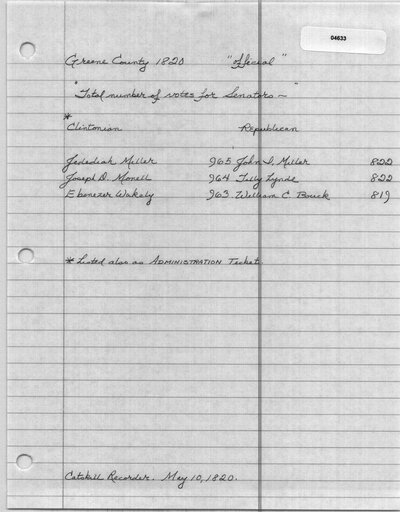 04633
Greene County 1820 "official"
"Total number of votes for Senators —"
*
Clintonian Republican
Jedediah Miller 965 John I. Miller 822
Joseph D. Monell 964 Tilly Lynde 822
Ebenezer Wakely 963 William C. Bouck 819
* Listed also as ADMINISTRATION Ticket.
Catskill Recorder. May 10, 1820.